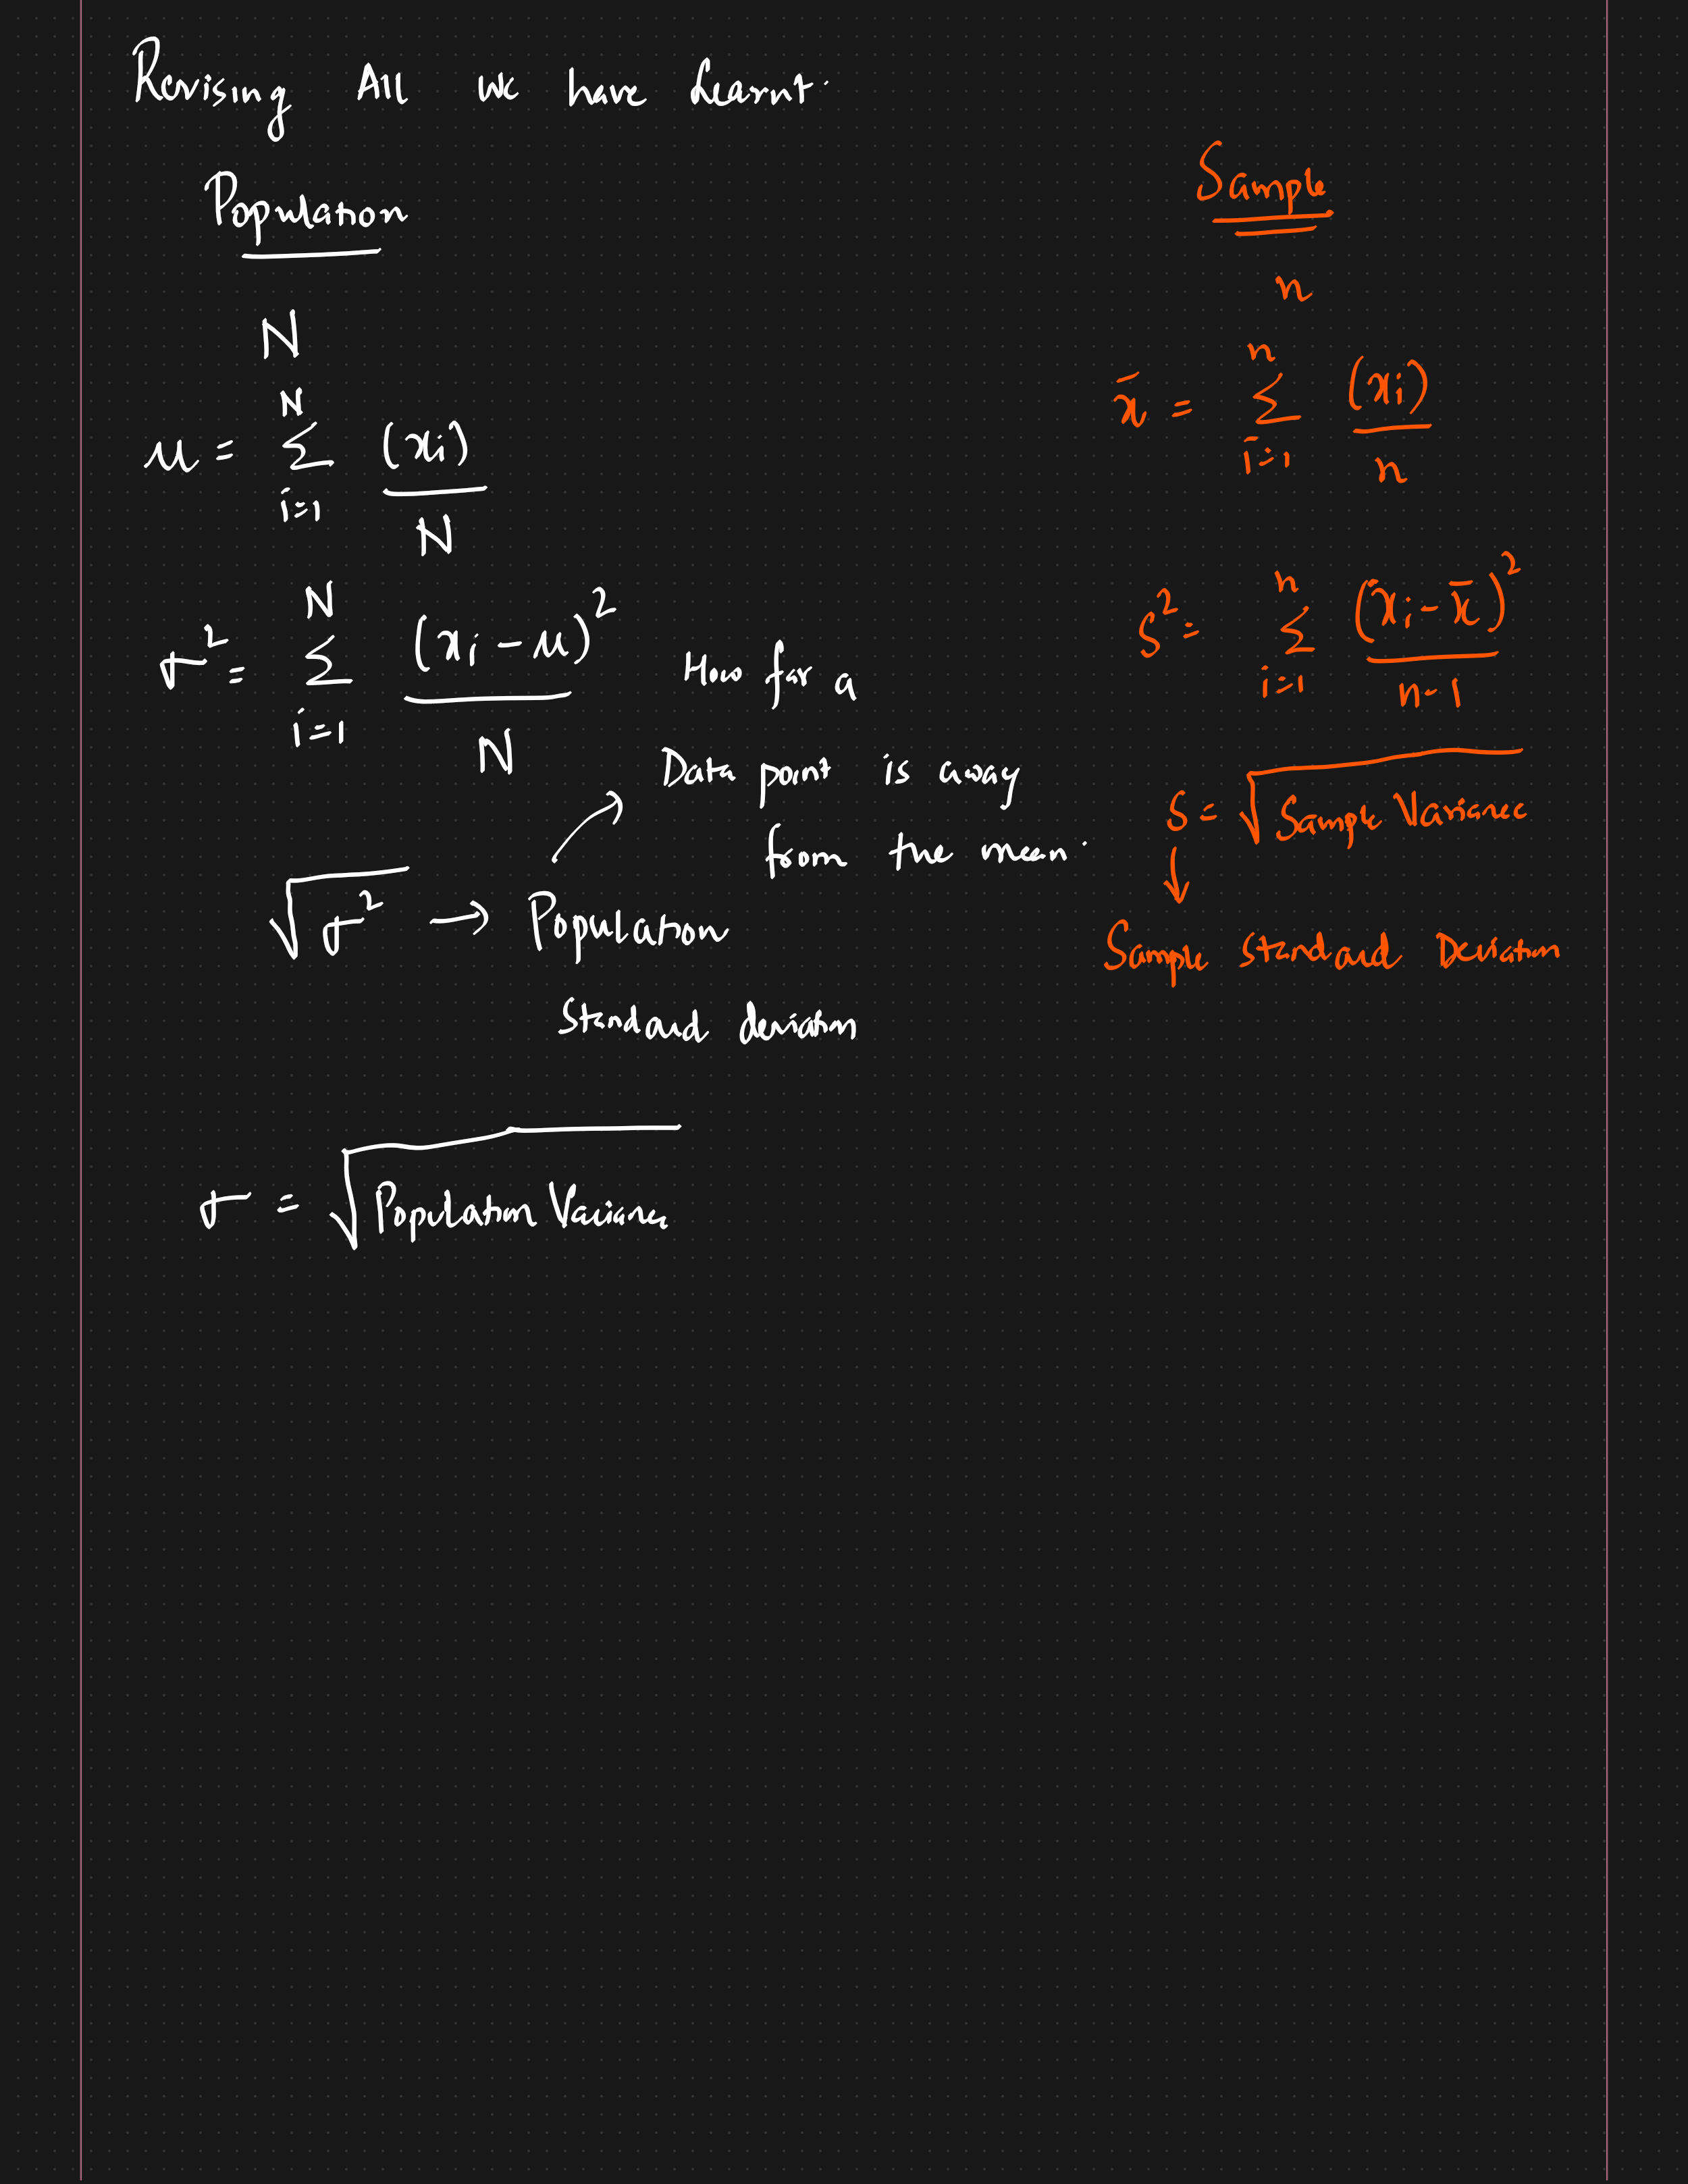 Revising All we have Learnt.
Population
N
μ = N Σ i=1 (xi) / N
σ² = N Σ i=1 (xi - μ)² / N
How far a
Data point is away
from the mean.
√σ² → Population
Standard deviation
σ = √Population Variance
Sample
n
x̄ = n Σ i=1 (xi) / n
S² = n Σ i=1 (xi - x̄)² / n-1
S = √Sample Variance
↓
Sample Standard Deviation